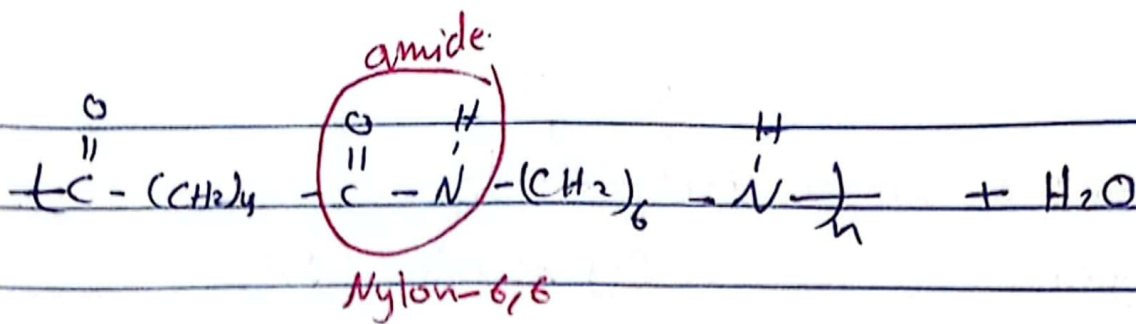 amide.
O O H H
|| || ' '
-(C-(CH2)4-C-N-(CH2)6-N-)n + H2O
Nylon-6,6